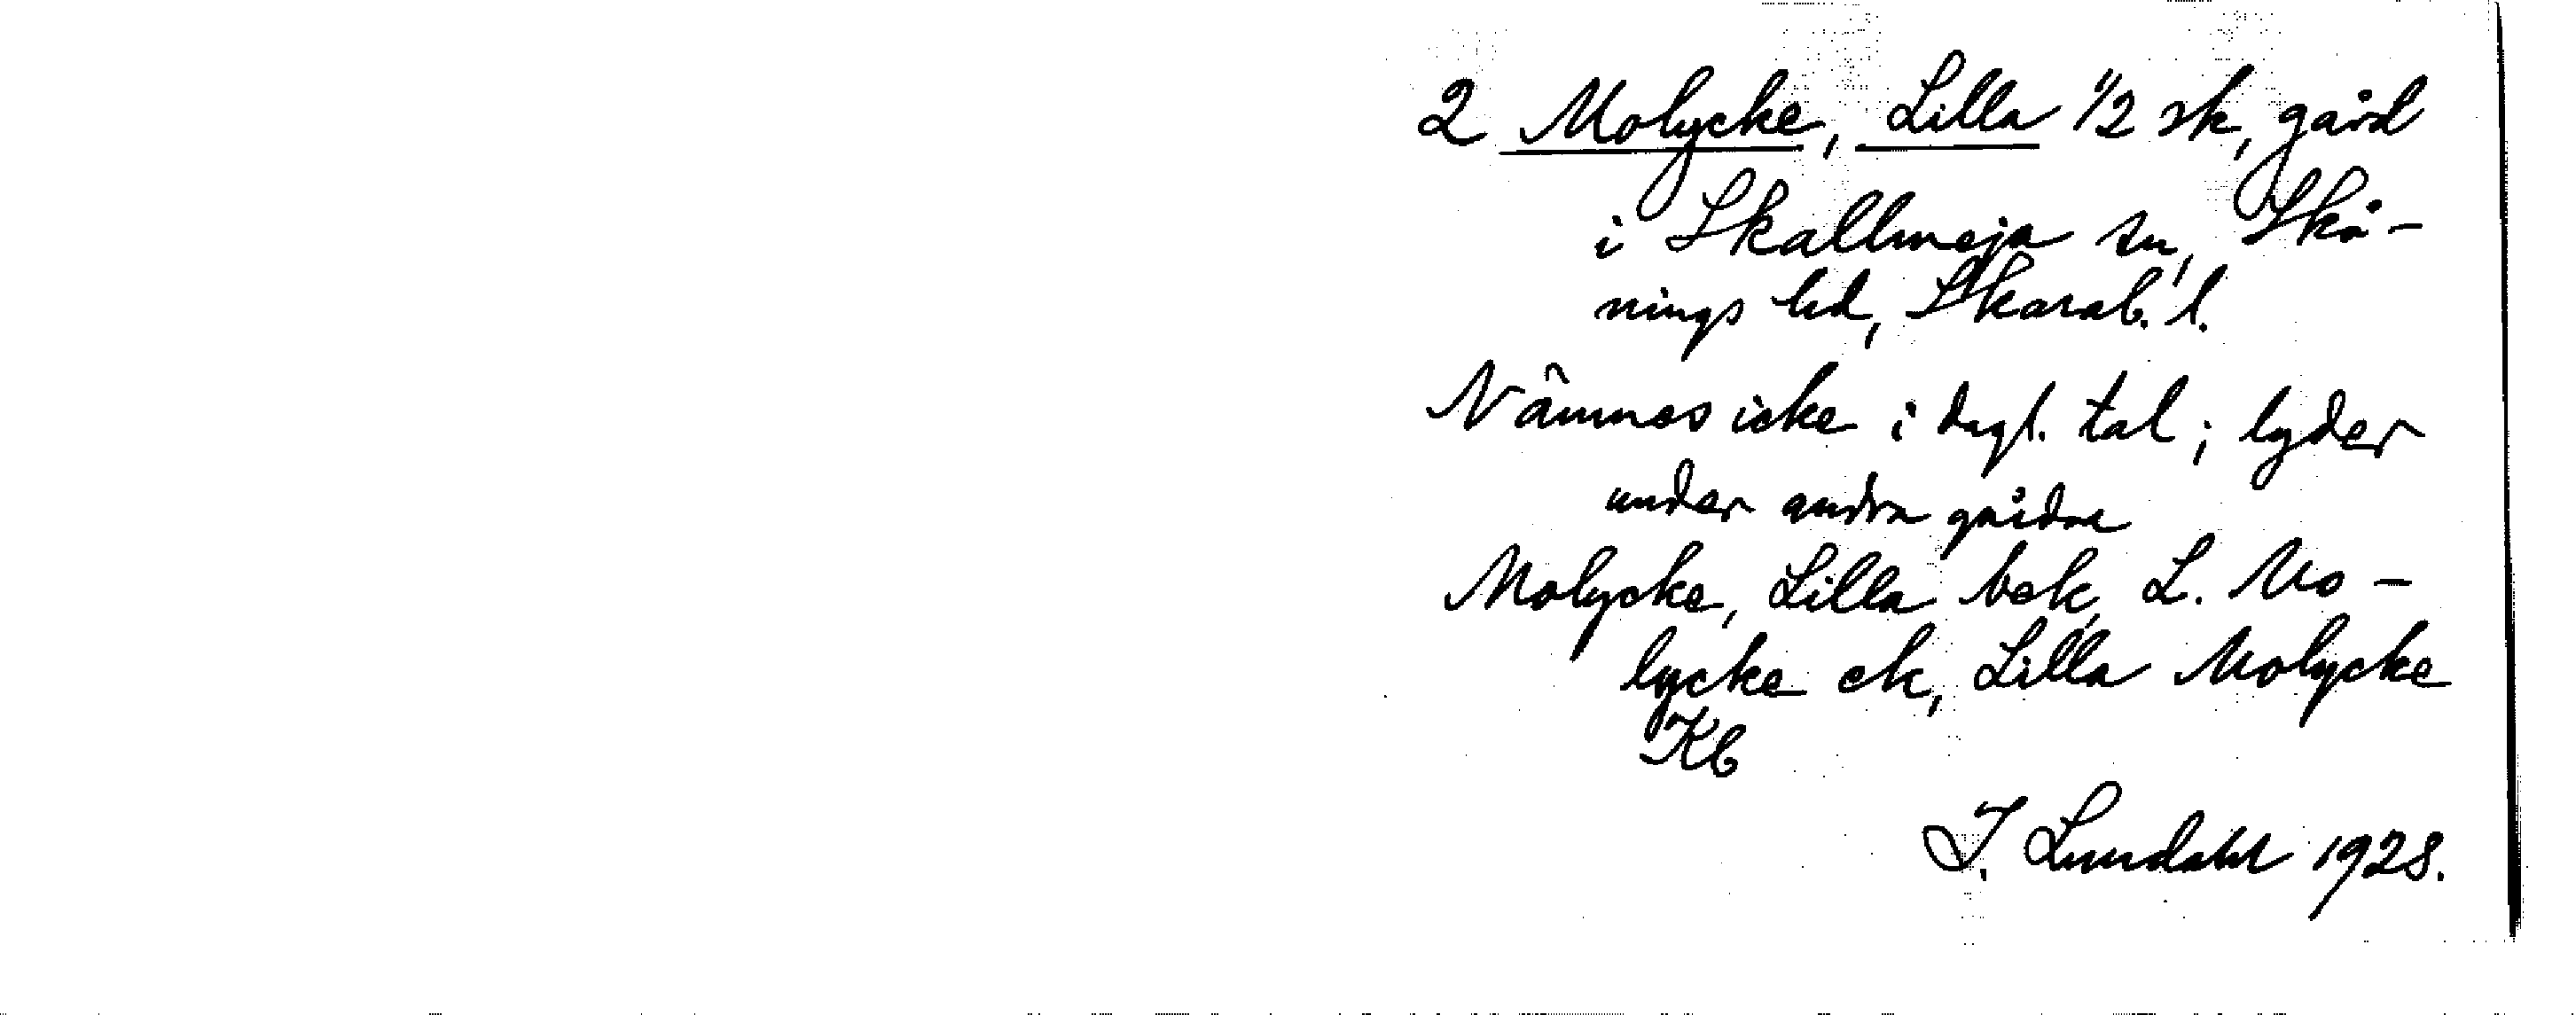 2 Molycke, Lilla 1/2 sk, gård
i Skallmeja sn, Skå-
nings hd, Skarab. l.
Nämnes icke i dagl. tal; lyder
under andra gårdar
Molycke, Lilla bok, L. Mo-
lycke ek, Lilla Molycke
Kb
I. Lundahl 1928.